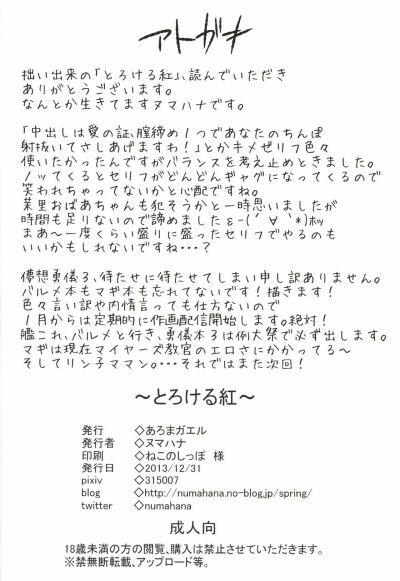 アトガキ
拙い出来の「とろける紅」、読んでいただき
ありがとうございます。
なんとか生きてますヌマハナです。
「中出しは愛の証、膣締め1つであなたのちんぽ
射抜いてさしあげますわ!」とかキメゼリフ色々
使いたかったんですがバランスを考え止めときました。
ノッてくるとセリフがどんどんギャグになってくるので
笑われちゃってないかと心配ですね。
菜里おばあちゃんも犯そうかと一時思いましたが
時間も足りないので諦めましたε-(´∀｀*)ホッ
まあ～一度くらい盛りに盛ったセリフでやるのも
いいかもしれないですね・・・?
儚想勇儀3、待たせに待たせてしまい申し訳ありません。
バルメ本もマギ本も忘れてないです!描きます!
色々言い訳や内情言っても仕方ないので
1月からは定期的に作画配信開始します。絶対!
艦これ、バルメと行き、勇儀本3は例大祭で必ず出します。
マギは現在マイヤーズ教官のエロさにかかってる～
そしてリン子ママン。...それではまた次回!
～とろける紅～
発行 ◇あろまガエル
発行者 ◇ヌマハナ
印刷 ◇ねこのしっぽ 様
発行日 ◇2013/12/31
pixiv ◇315007
blog ◇http://numahana.no-blog.jp/spring/
twitter ◇numahana
成人向
18歳未満の方の閲覧、購入は禁止させていただきます。
※禁無断転載、アップロード等。